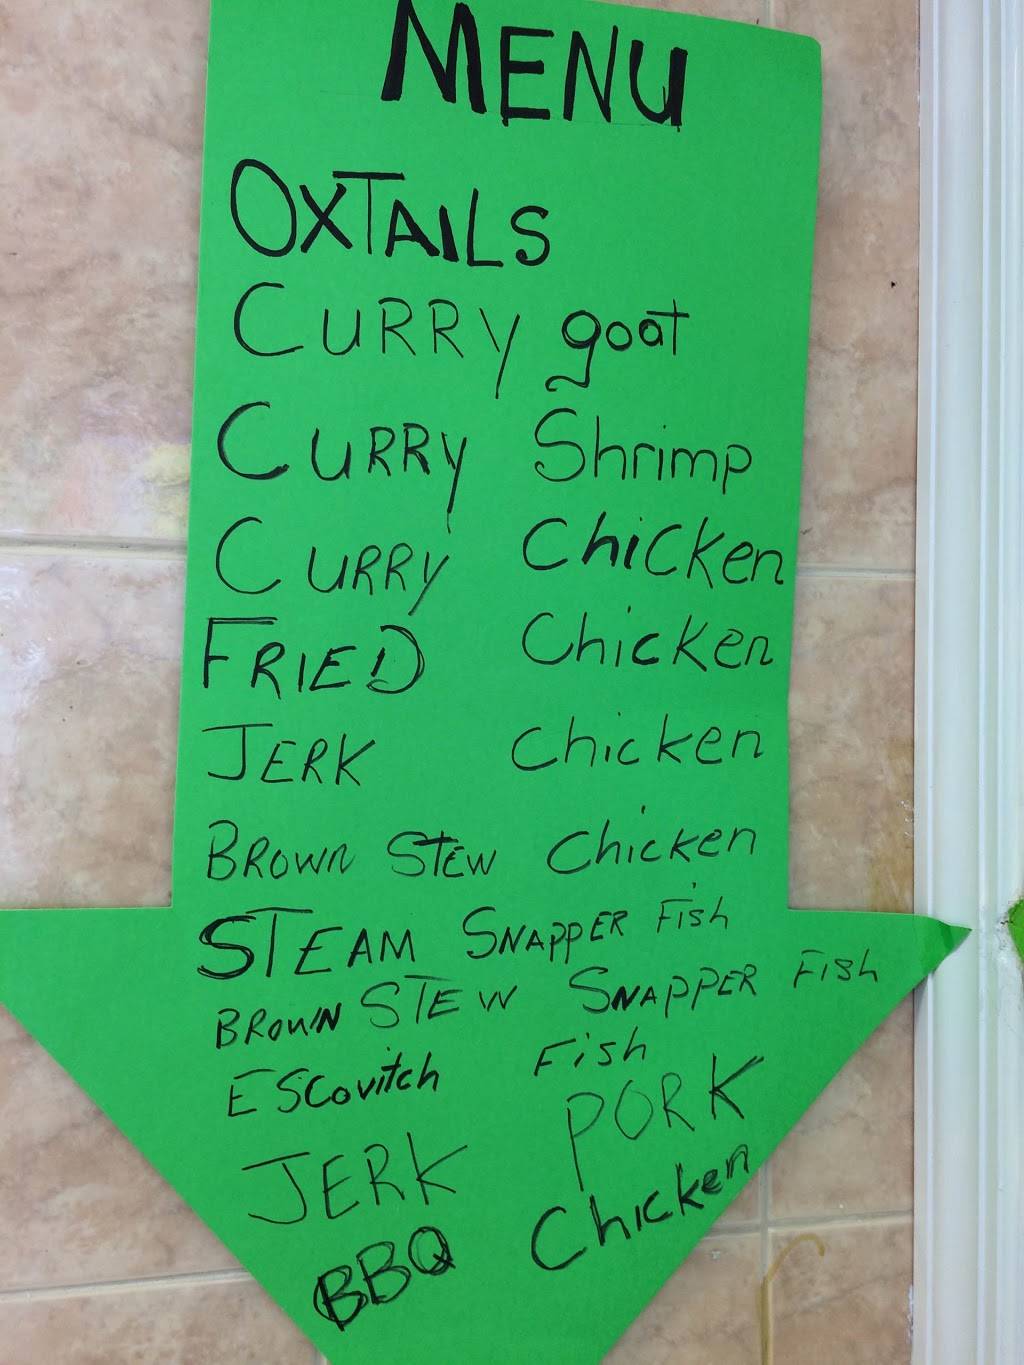 MENU
OXTAILS
CURRY goat
CURRY Shrimp
CURRY Chicken
FRIED Chicken
JERK Chicken
BROWN STEW Chicken
STEAM SNAPPER FISh
BROWN STEW SNAPPER FISh
ESCovitch Fish
JERK PORK
BBQ Chicken